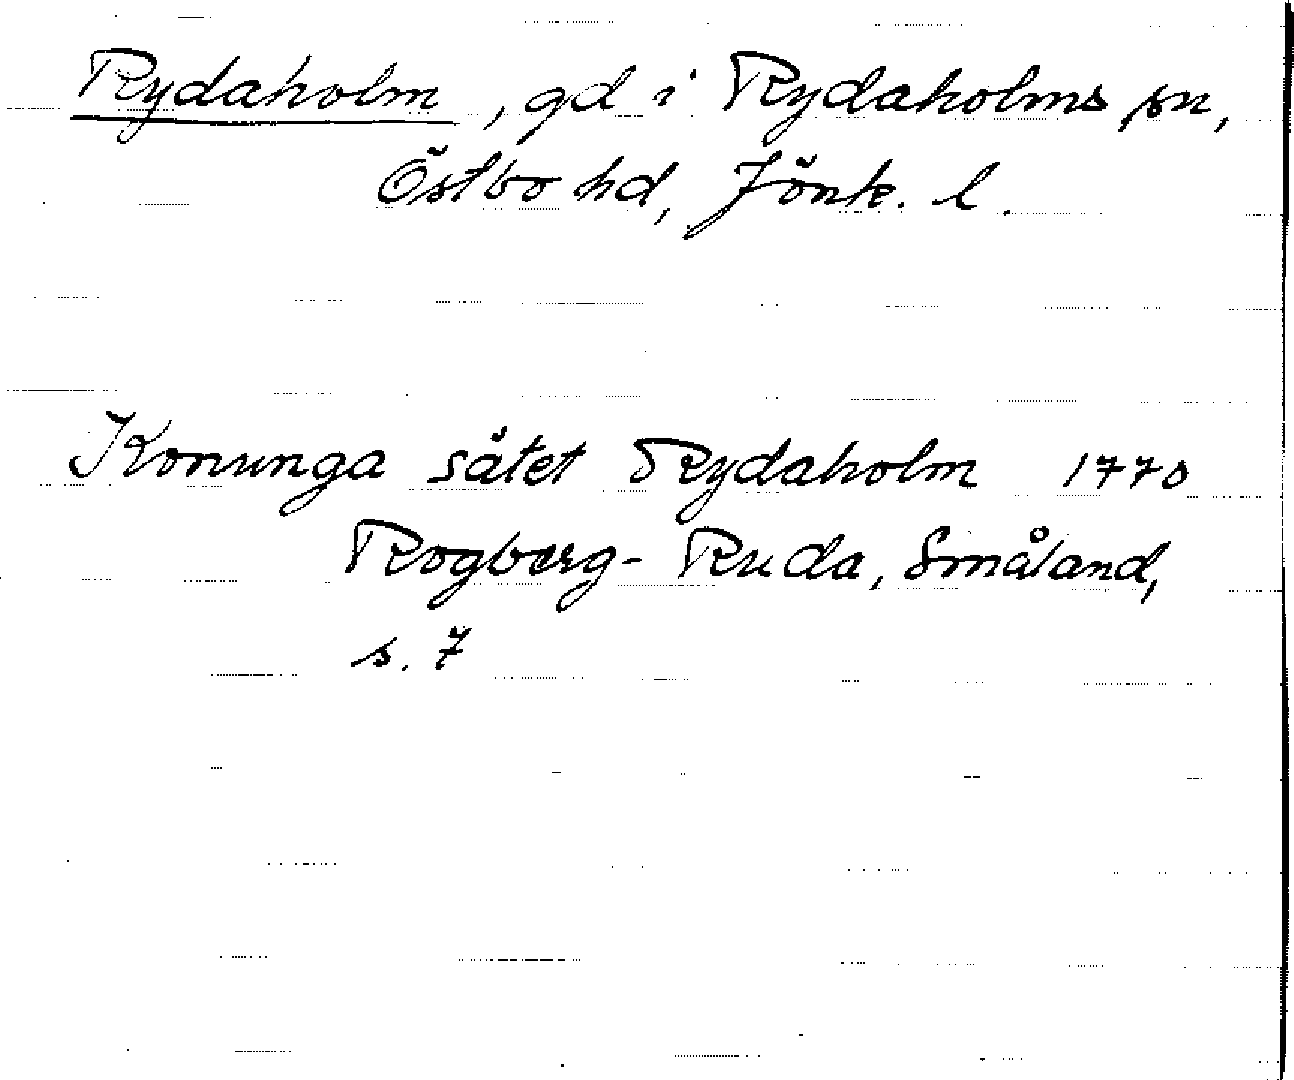 Rydaholm, gd i Rydaholms sn,
Östbo hd, Jönk. l.
Konunga sätet Rydaholm 1770
Rogberg-Ruda, Småland,
s. 7